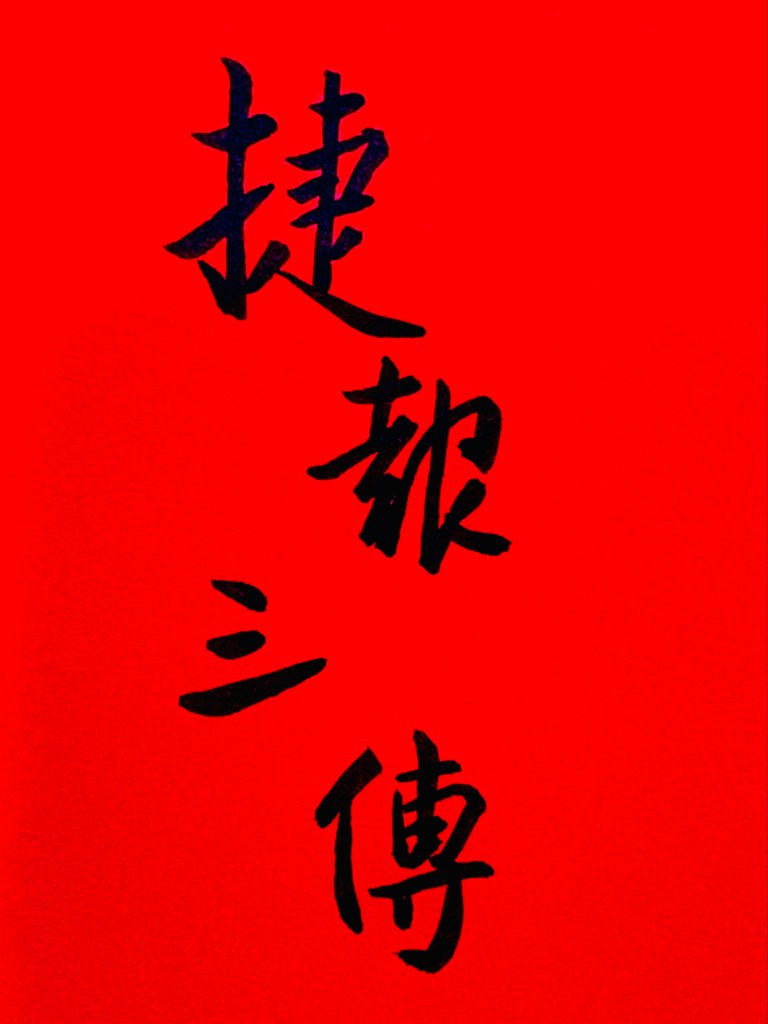 捷報三傳